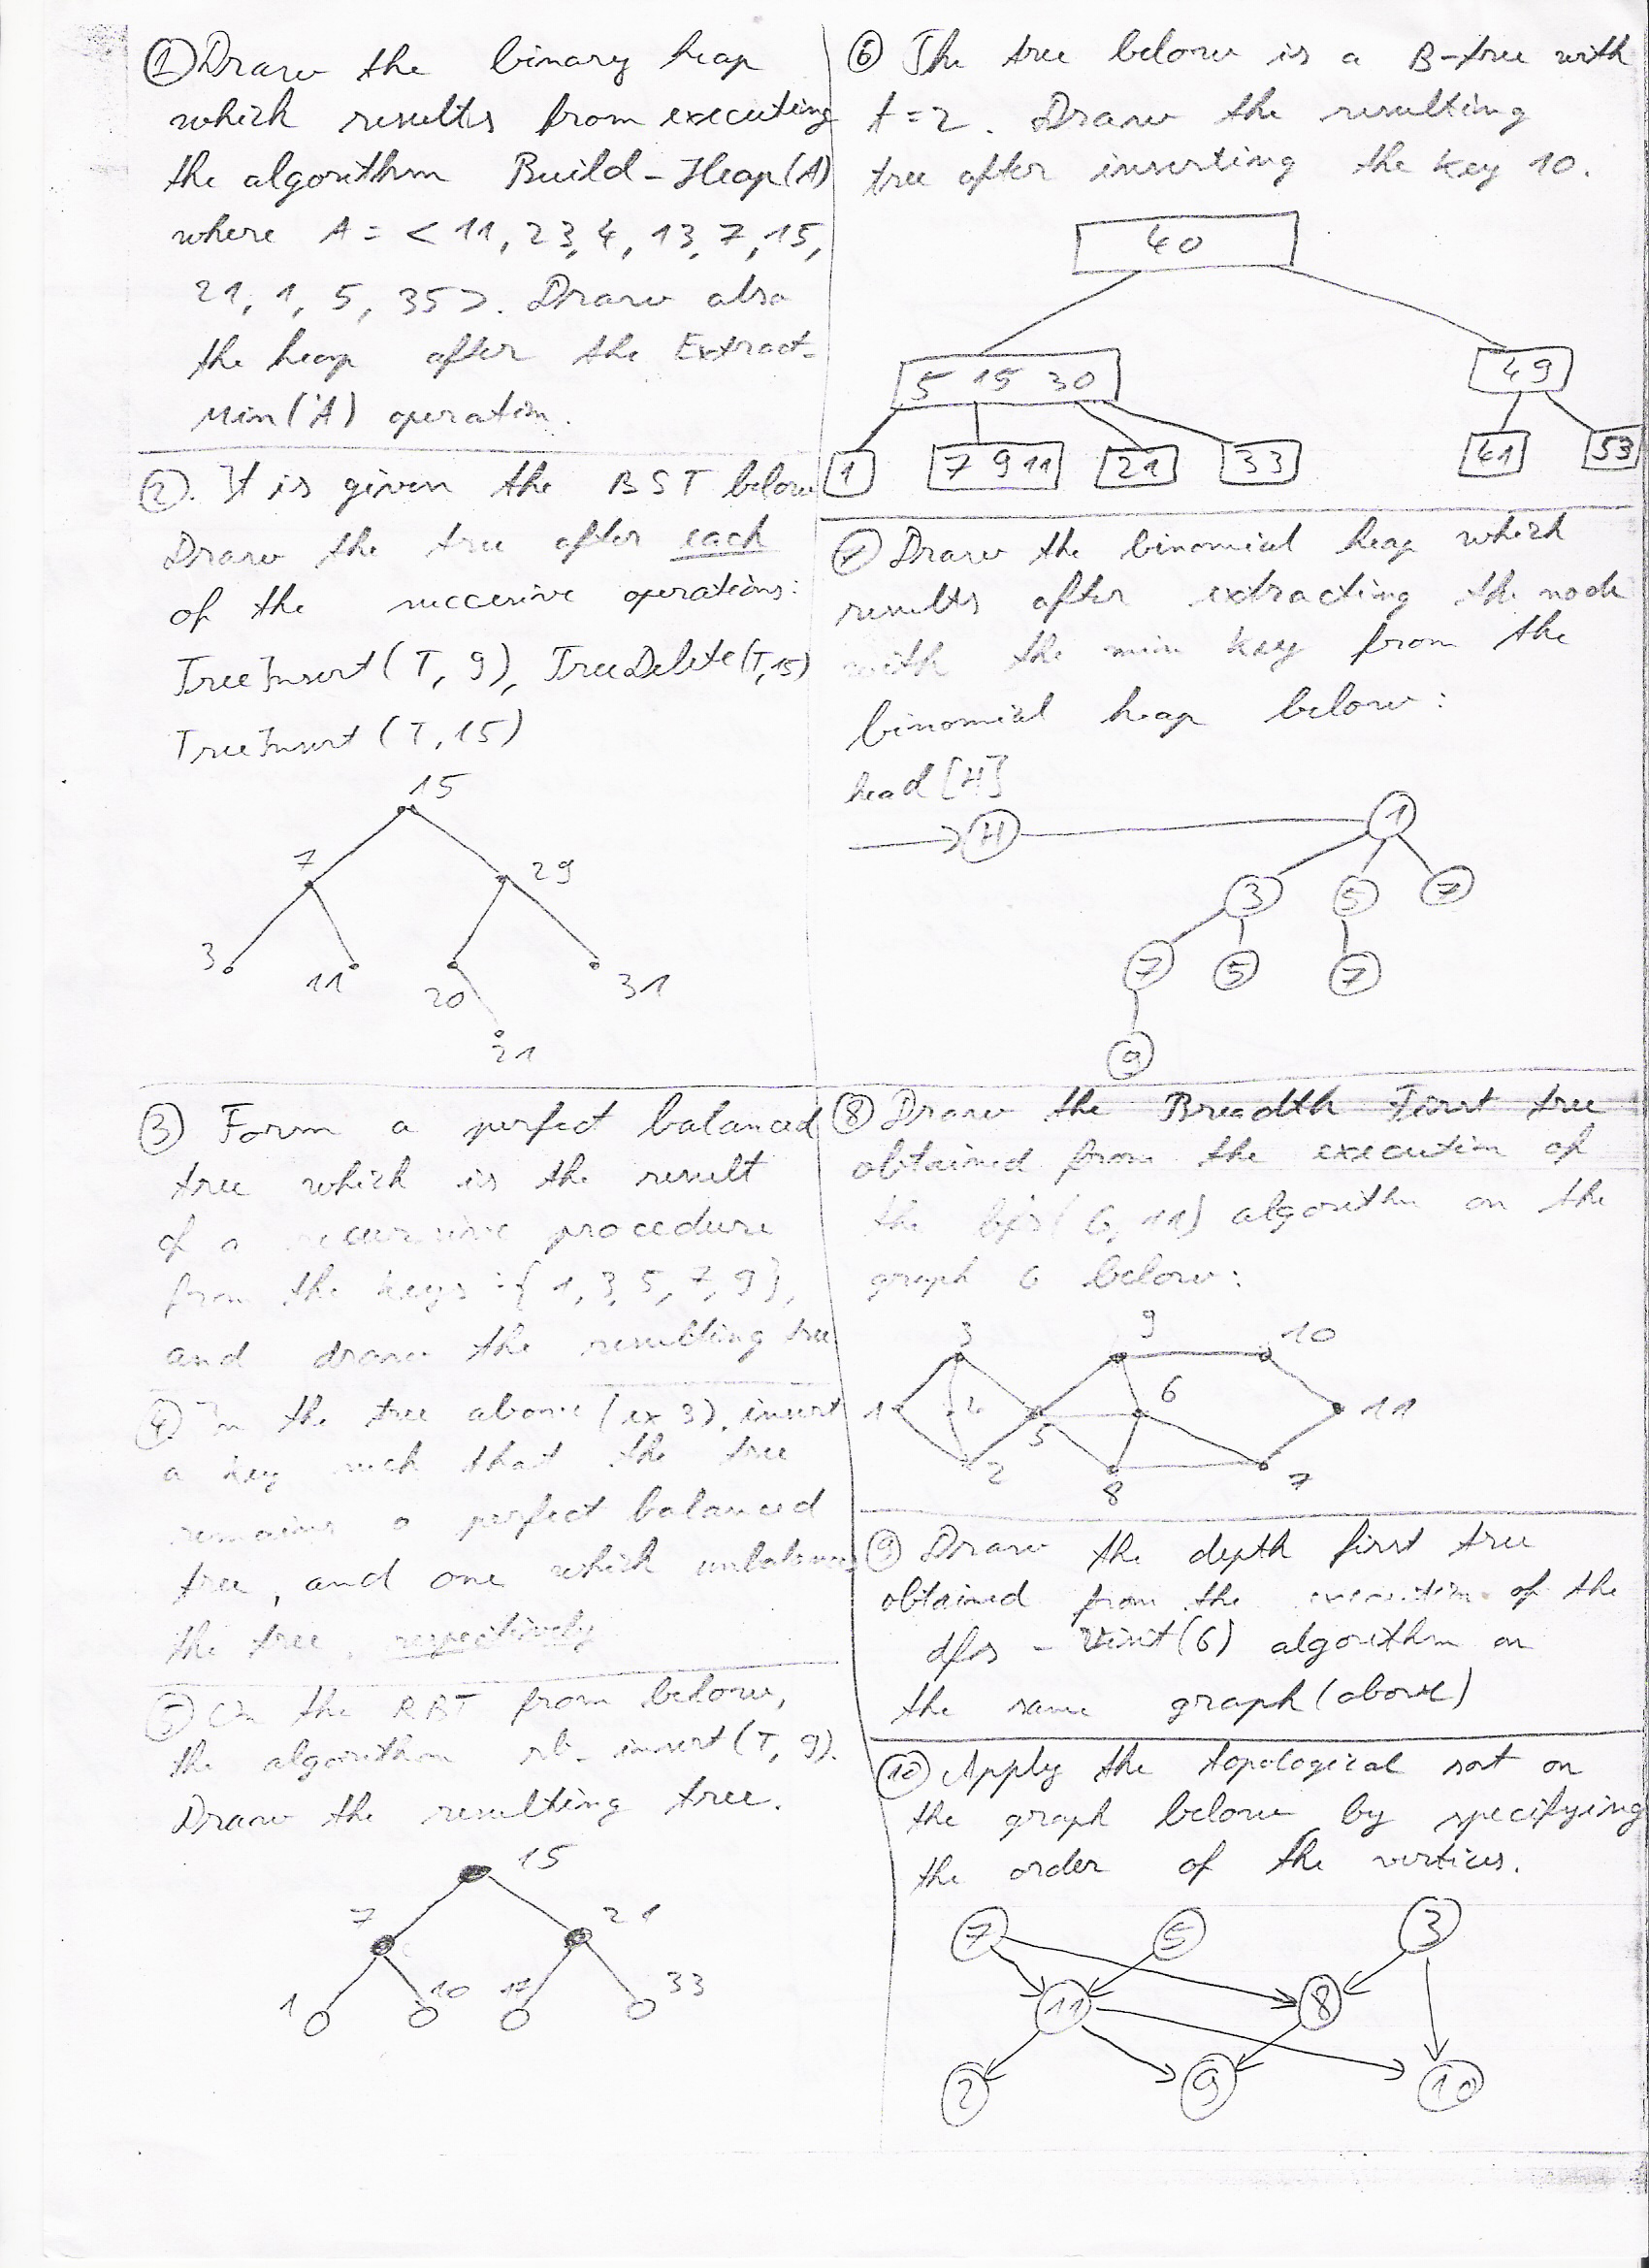 ① Draw the binary heap
which results from executing
the algorithm Build-Heap(A)
where A = < 11, 23, 4, 13, 7, 15,
21, 1, 5, 35 >. Draw also
the heap after the Extract-
Min(A) operation.
②. It is given the BST below
Draw the tree after each
of the succesive operations:
TreeInsert(T, 9), TreeDelete(T,15)
TreeInsert(T,15)
15
7 29
3 11 20 31
21
③ Form a perfect balanced
tree which is the result
of a recursive procedure
from the keys : { 1, 3, 5, 7, 9 },
and draw the resulting tree
④ In the tree above (ex 3), insert
a key such that the tree
remains a perfect balanced
tree, and one which unbalances
the tree, respectively
⑤ On the RBT from below,
the algorithm rb-insert(T, 9).
Draw the resulting tree.
15
7 21
1 10 17 33
⑥ The tree below is a B-tree with
t=2. Draw the resulting
tree after inserting the key 10.
40
5 15 30 49
1 7 9 11 21 33 41 53
⑦ Draw the binomial heap which
results after extracting the node
with the min key from the
binomial heap below:
head[H]
1
3 5 7
7 5 7
9
⑧ Draw the Breadth First tree
obtained from the execution of
the bfs(G, 11) algorithm on the
graph G below:
3 9 10
1 4 5 6 11
2 8 7
⑨ Draw the depth first tree
obtained from the execution of the
dfs-visit(6) algorithm on
the same graph (above)
⑩ Apply the topological sort on
the graph below by specifying
the order of the vertices.
7 5 3
11 8
2 9 10